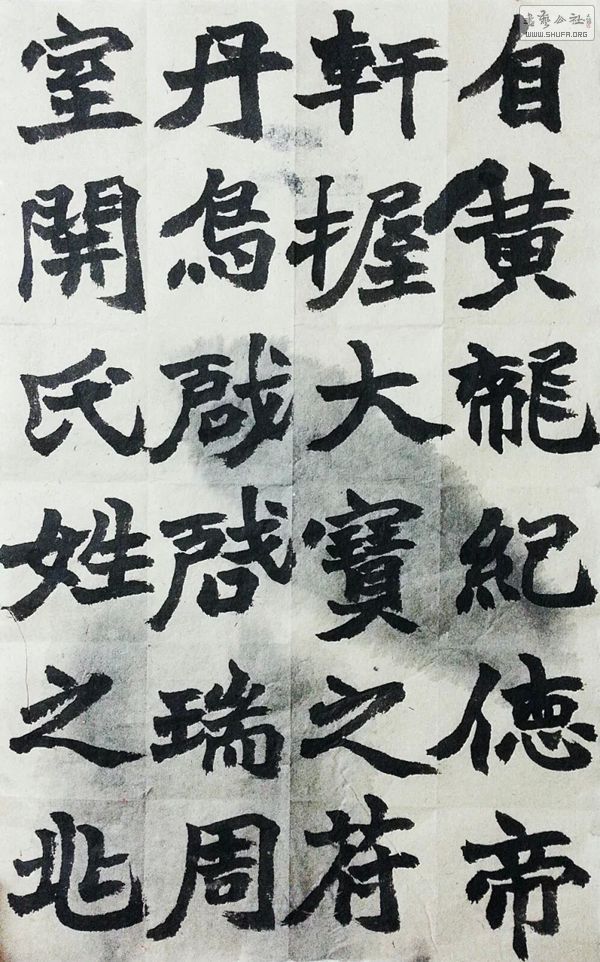 书艺公社
WWW.SHUFA.ORG
自黄龍紀德帝
軒握大寶之符
丹鳥啟啟瑞周
室開氏姓之兆